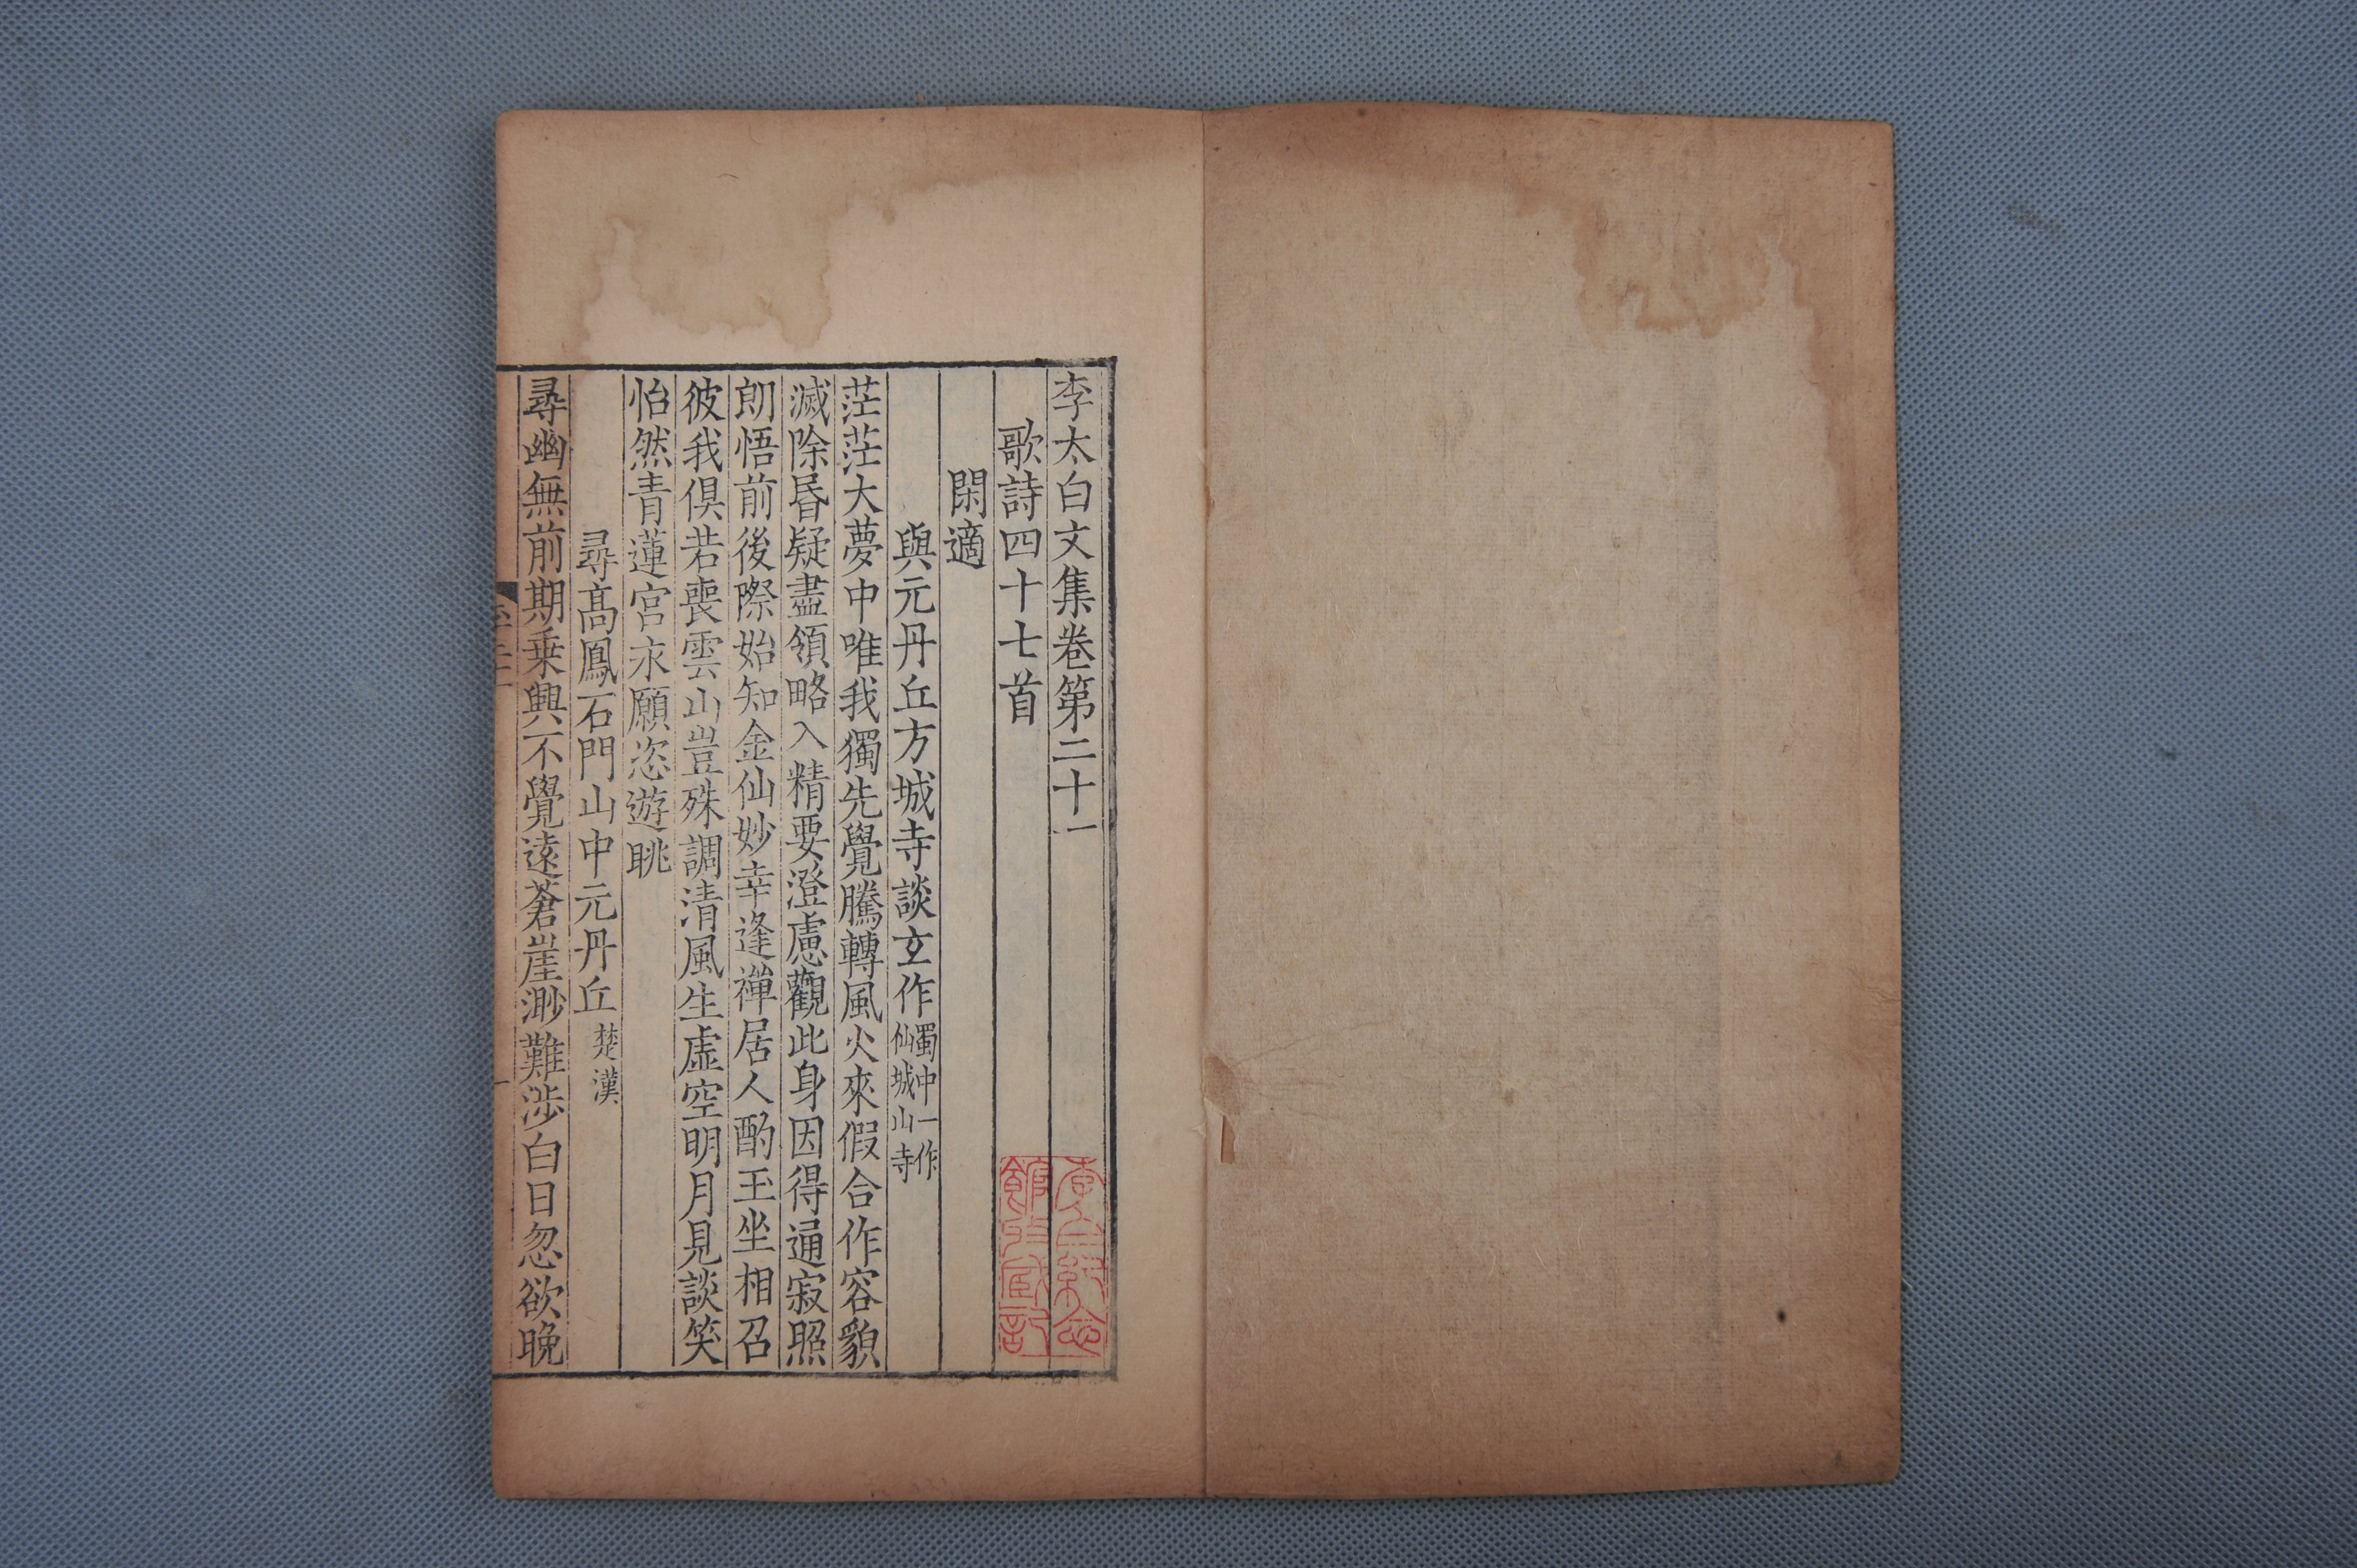 李太白文集卷第二十一
歌詩四十七首
閑適
與元丹丘方城寺談玄作蜀中一作仙城山寺
茫茫大夢中唯我獨先覺騰轉風火來假合作容貌
滅除昬疑盡領略入精要澄慮觀此身因得通寂照
朗悟前後際始知金仙妙幸逢禪居人酌玉坐相召
彼我俱若喪雲山豈殊調清風生虛空明月見談笑
怡然青蓮宮永願恣遊眺
尋高鳳石門山中元丹丘楚漢
尋幽無前期乗興不覺遠蒼崖渺難涉白日忽欲晚
李白紀念館收藏記